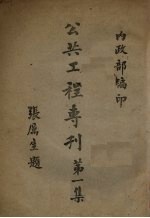 內政部編印
公共工程專刊 第一集
張厲生題